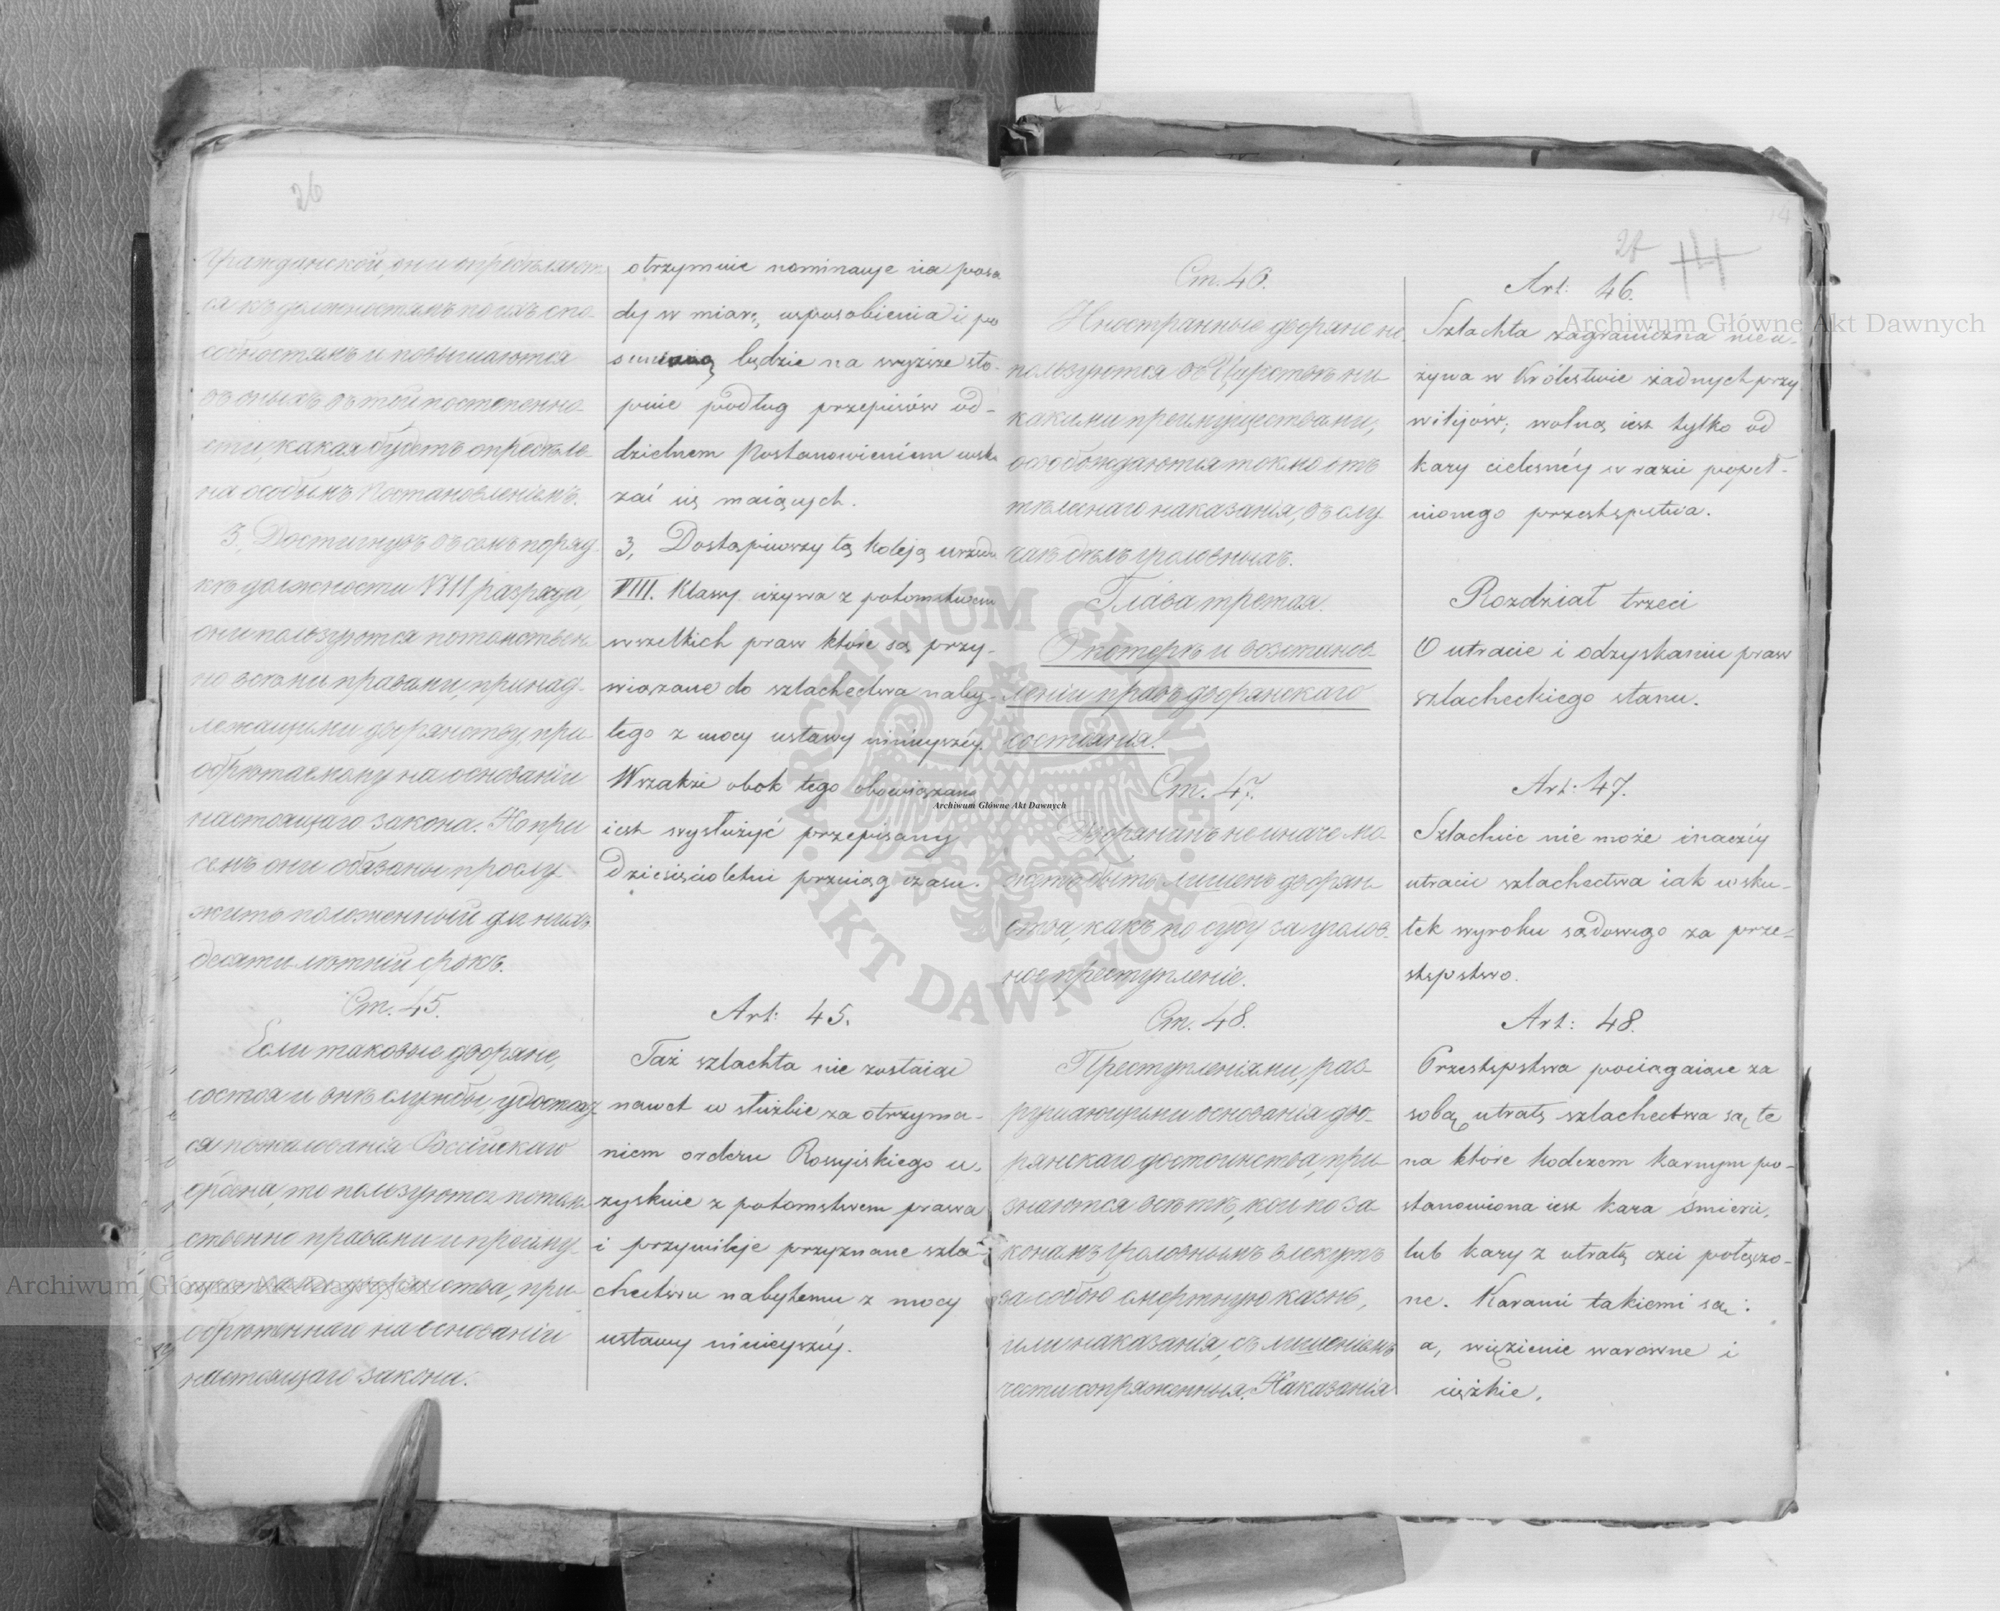 26
Гражданской, они опредѣляют-
ся къ должностямъ по ихъ спо-
собностямъ и повышаются
въ оныхъ въ той постепенно-
сти, какая будетъ опредѣле-
на особымъ Постановленіемъ.
3, Достигнувъ въ семъ поряд-
кѣ должности VIII разряда,
они пользуются потомствен-
но всѣми правами, принад-
лежащими дворянству, прі-
обрѣтаемому на основаніи
настоящаго закона. Но при
семъ они обязаны прослу-
жить положенный для нихъ
десятилѣтній срокъ.
Ст. 45.
Если таковые дворяне,
состоя и внѣ службы, удостоят-
ся пожалованія Россійскаго
ордена, то пользуются потом-
ственно правами и преиму-
ществами дворянства, прі-
обрѣтеннаго на основаніи
настоящаго закона.
otrzymuie nominacye na posa
dy w miarę usposobienia i po
będzie na wyższe sto-
pnie podług przepisów od-
dzielnem Postanowieniem wska
zać się maiących.
3, Dostąpiwszy tą koleją urzędu
VIII. Klassy używa z potomstwem
wszelkich praw które są przy-
wiązane do szlachectwa naby-
tego z mocy ustawy ninieyszéy.
Wszakże obok tego obowiązana
iest wysłużyć przepisany
Dziesięcioletni przeciąg czasu.
Art: 45.
Taż szlachta nie zostaiąc
nawet w służbie za otrzyma-
niem orderu Rossyiskiego u-
zyskuie z potomstwem prawa
i przywileje przyznane szla-
chectwu nabytemu z mocy
ustawy ninieyszéy.
27 14
Ст. 46.
Иностранные дворяне не
пользуются въ Царствѣ ни-
какими преимуществами,
освобождаются токмо отъ
тѣлеснаго наказанія, въ слу-
чаѣ дѣлъ уголовныхъ.
Глава третья.
О потерѣ и возстанов-
леніи правъ дворянскаго
состоянія.
Ст. 47.
Дворянинъ не иначе мо-
жетъ быть лишенъ дворян-
ства, какъ по суду за уголов-
ное преступленіе.
Ст. 48.
Преступленіями, раз-
рушающими основанія дво-
рянскаго достоинства, при-
знаются всѣ тѣ, кои по за-
конамъ уголовнымъ влекутъ
за собою смертную казнь,
или наказанія, съ лишеніемъ
чести сопряженныя. Наказанія
Art: 46.
Szlachta zagraniczna nie u-
zywa w Królestwie żadnych przy
wilejów; wolną iest tylko od
kary cielesnéy w razie popeł-
nionego przestępstwa.
Rozdział trzeci
O utracie i odzyskaniu praw
szlacheckiego stanu.
Art: 47.
Szlachcic nie może inaczéy
utracić szlachectwa iak w sku-
tek wyroku sądowego za prze-
stępstwo.
Art: 48.
Przestępstwa pociągaiące za
sobą utratę szlachectwa są te
na które kodexem karnym po-
stanowiona iest kara śmierci,
lub kary z utratą czci połączo-
ne. Karami takiemi są:
a, więzienie warowne i
ciężkie,
Archiwum Główne Akt Dawnych
Archiwum Główne Akt Dawnych
Archiwum Główne Akt Dawnych
ARCHIWUM GŁÓWNE AKT DAWNYCH